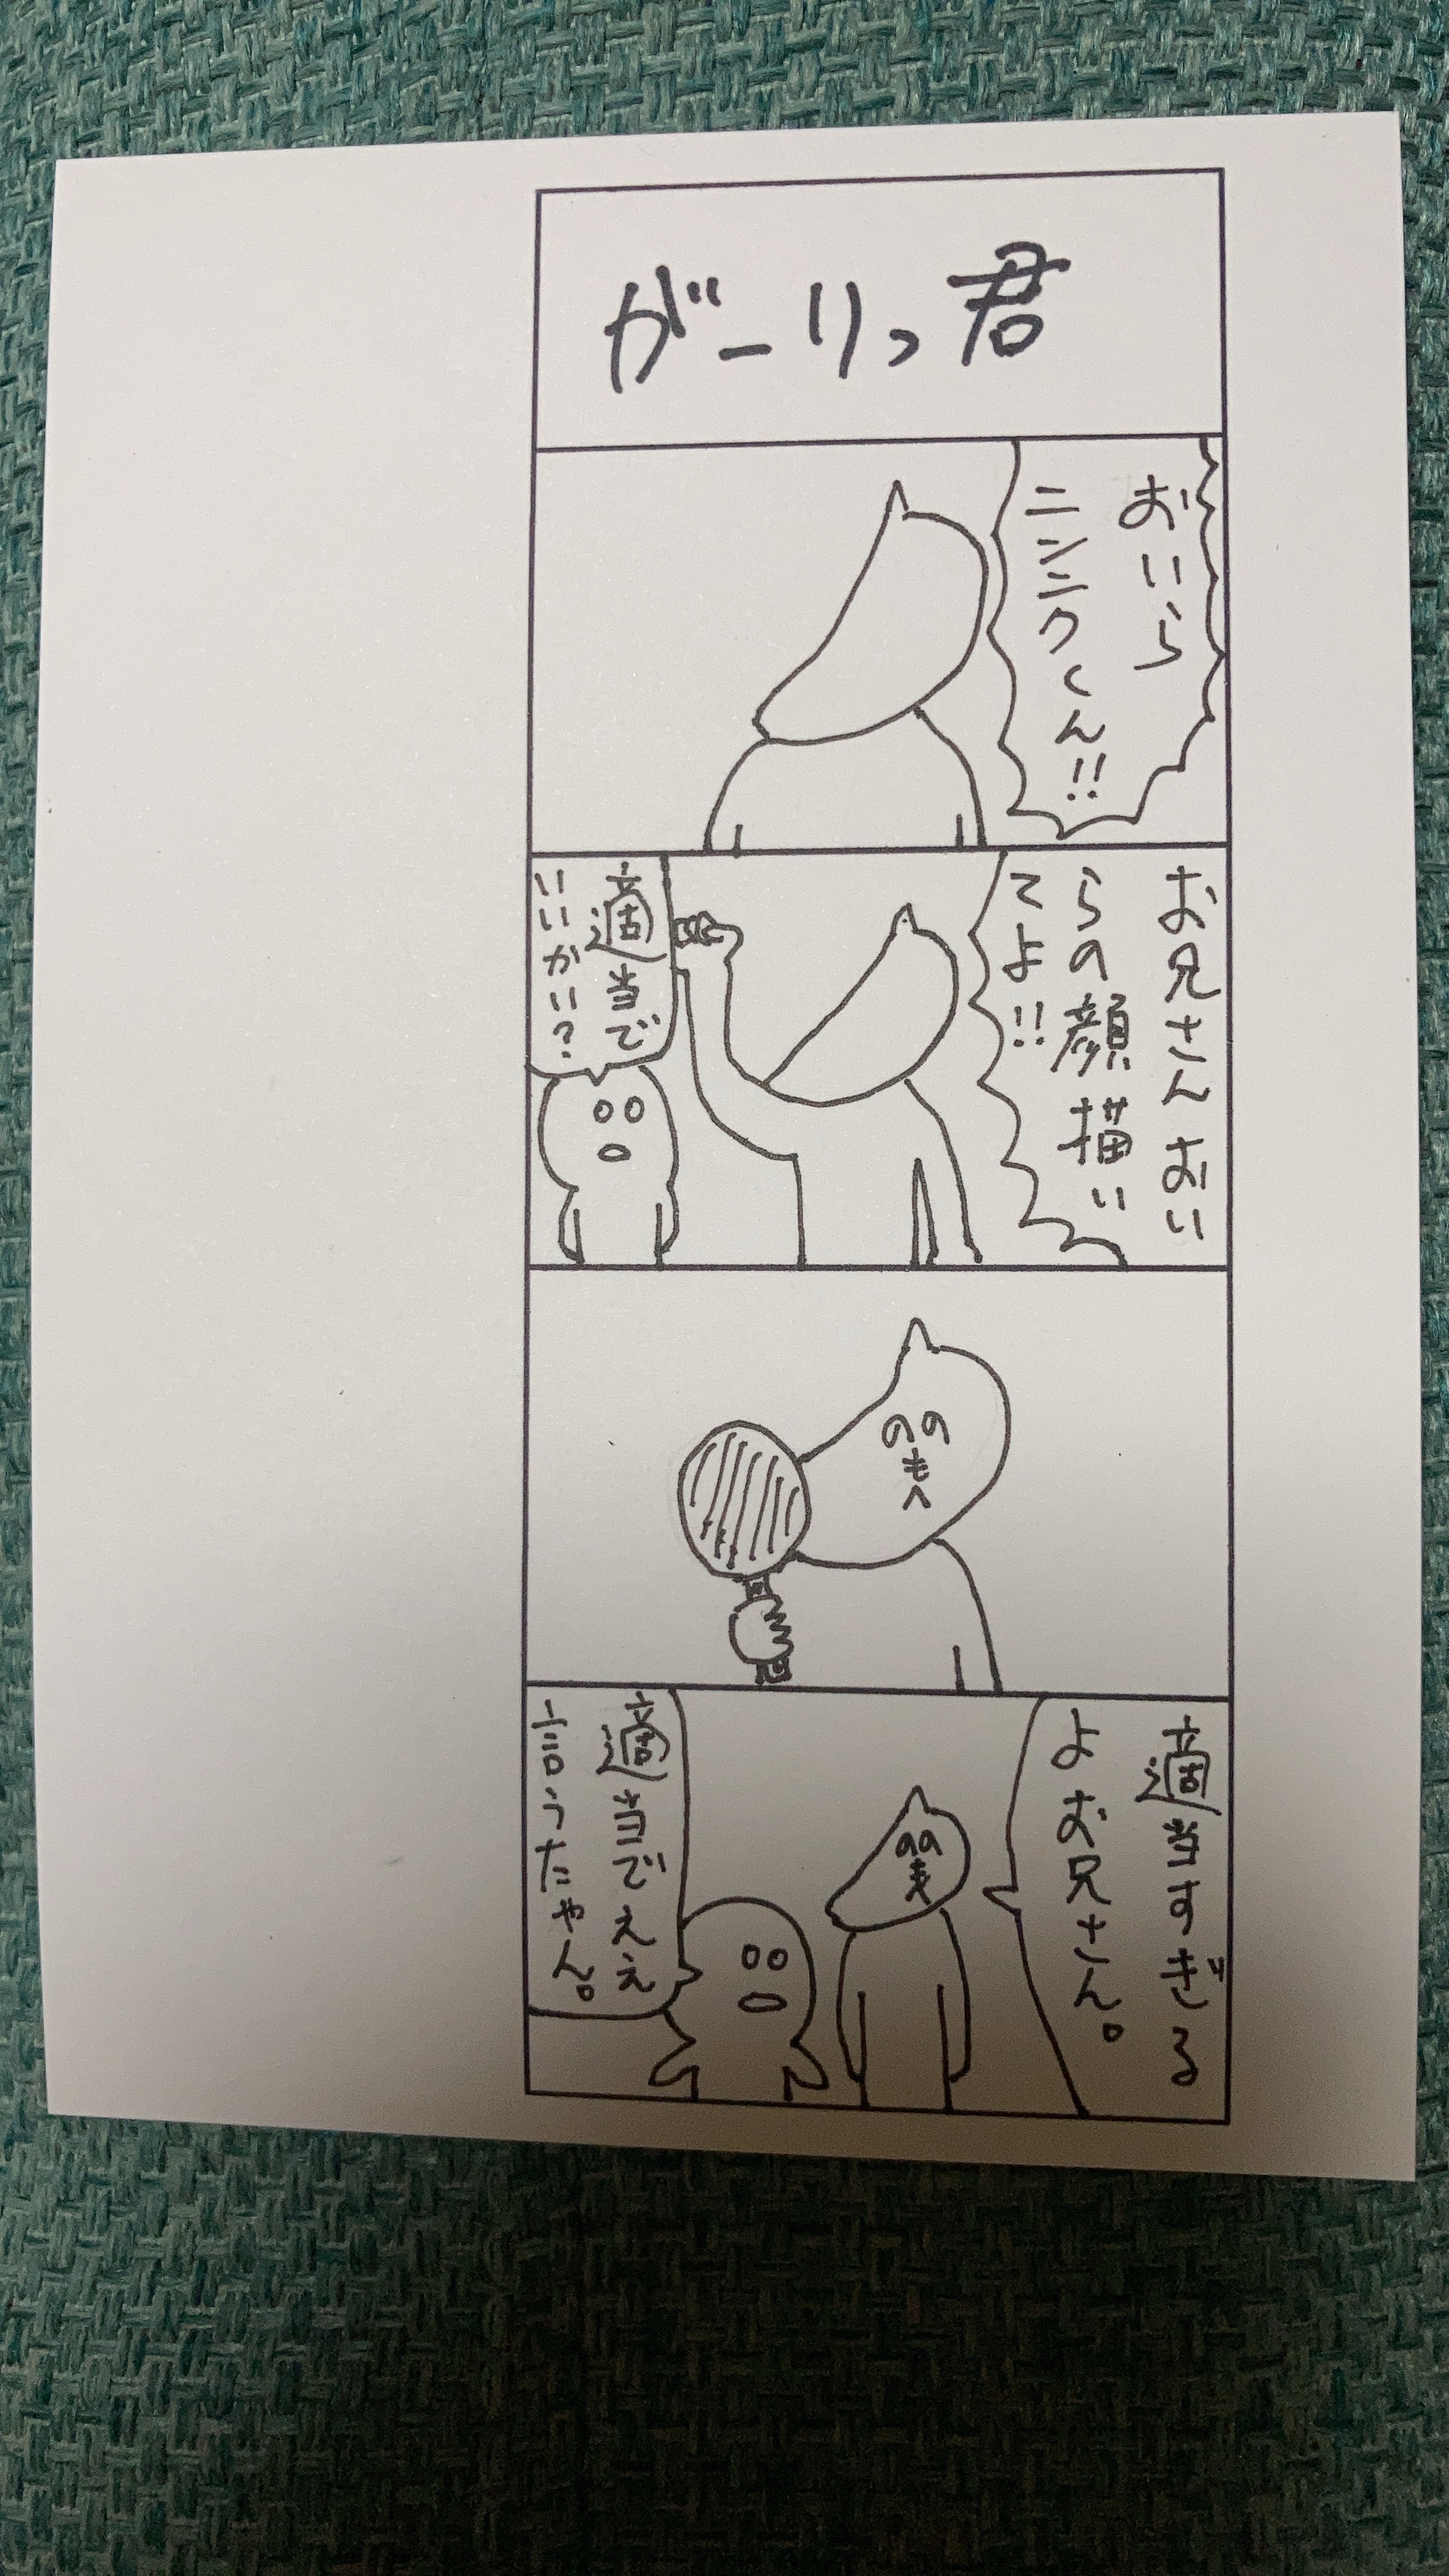 がーりっ君
おいら
ニンニクくん!!
お兄さんおい
らの顔描い
てよ!!
適当で
いいかい?
のの
も
へ
適当すぎる
よお兄さん。
のの
も
へ
適当でええ
言うたやん。